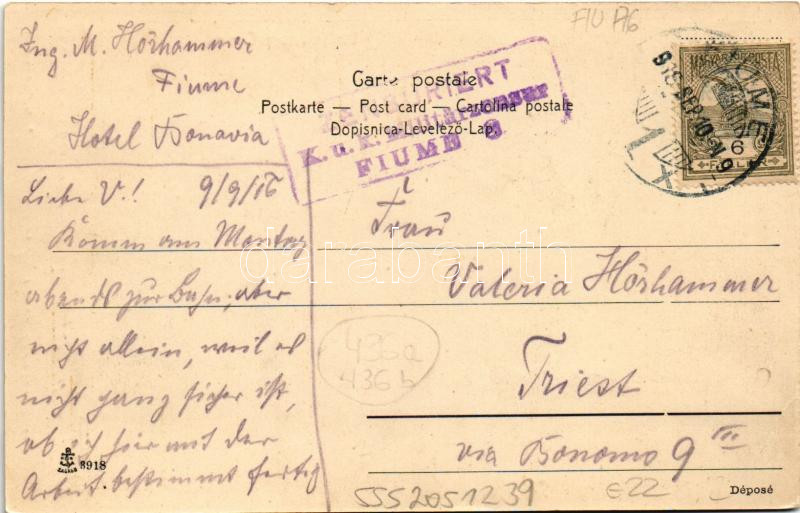 FIU A6
Ing. M. Hörhammer
Fiume
Hotel Bonavia
Carte postale
Postkarte — Post card — Cartolina postale
Dopisnica-Levelező-Lap.
ZENSURIERT
K. u. K. Militärzensur
FIUME
MAGYAR KIR. POSTA
6
FILLÉR
FIUME
916 SEP 10
Liebe V.! 9/9/16
Komm am Montag
abends zur Bahn, aber
nicht allein, weil es
nicht ganz sicher ist,
ob ich hier mit der
Arbeit bestimmt fertig
Frau
Valeria Hörhammer
Triest
via Bonomo 9 III
darabanth
436a
436b
ZAGREB
3918
5552051239
€22
Déposé